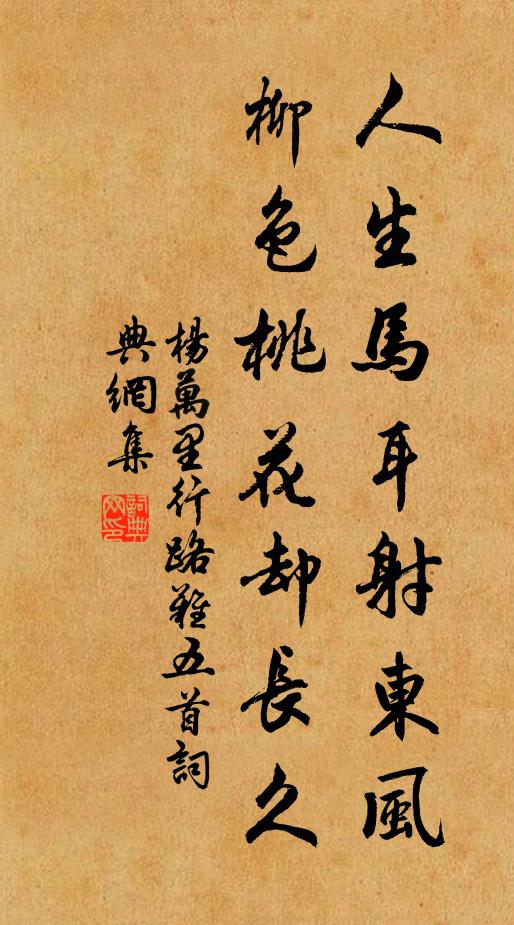 人生馬耳射東風
柳色桃花却長久
楊萬里行路難五首詞
典網集
詞典
网印